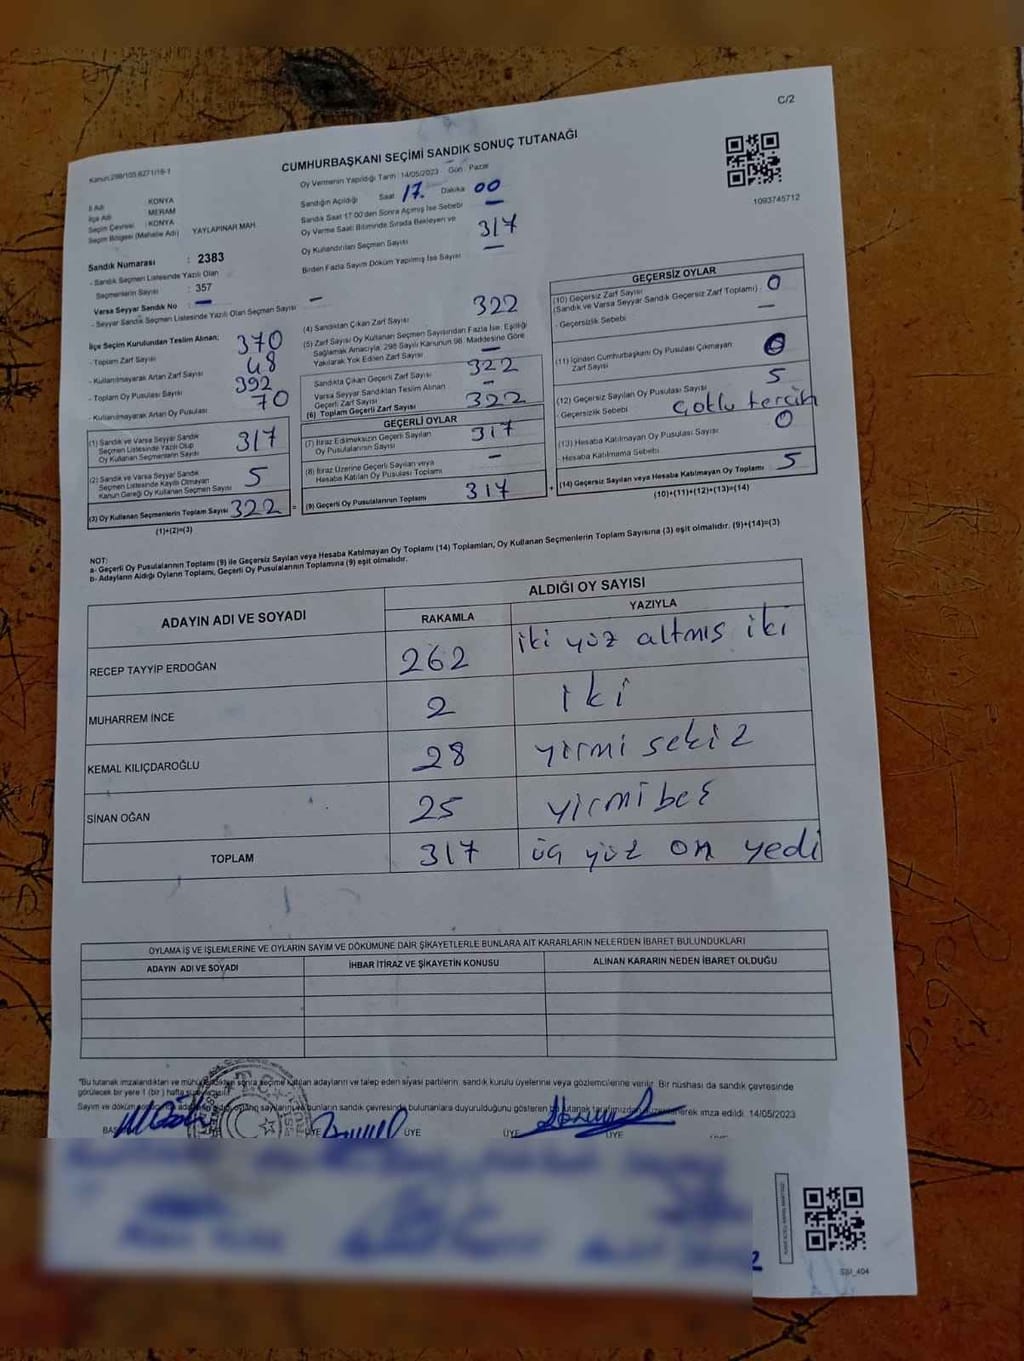 C/2
Kanun:298/105,6271/16-1
CUMHURBAŞKANI SEÇİMİ SANDIK SONUÇ TUTANAĞI
Oy Vermenin Yapıldığı Tarih 14/05/2023 Gün : Pazar
1093745712
İl Adı : KONYA
İlçe Adı : MERAM
Seçim Çevresi : KONYA
Seçim Bölgesi (Mahalle Adı) YAYLAPINAR MAH
Sandığın Açıldığı Saat 17. Dakika 00
Sandık Saat 17:00'den Sonra Açılmış İse Sebebi —
Oy Verme Saati Bitiminde Sırada Bekleyen ve
Oy Kullandırılan Seçmen Sayısı 317
Birden Fazla Sayım Döküm Yapılmış İse Sayısı —
Sandık Numarası : 2383
- Sandık Seçmen Listesinde Yazılı Olan
Seçmenlerin Sayısı : 357
Varsa Seyyar Sandık No : —
- Seyyar Sandık Seçmen Listesinde Yazılı Olan Seçmen Sayısı —
İlçe Seçim Kurulundan Teslim Alınan;
- Toplam Zarf Sayısı 370
- Kullanılmayarak Artan Zarf Sayısı 48
- Toplam Oy Pusulası Sayısı 392
- Kullanılmayarak Artan Oy Pusulası 70
(1) Sandık ve Varsa Seyyar Sandık
Seçmen Listesinde Yazılı Olup
Oy Kullanan Seçmenlerin Sayısı 317
(2) Sandık ve Varsa Seyyar Sandık
Seçmen Listesinde Kayıtlı Olmayan
Kanun Gereği Oy Kullanan Seçmen Sayısı 5
(3) Oy Kullanan Seçmenlerin Toplam Sayısı 322
(1)+(2)=(3)
(4) Sandıktan Çıkan Zarf Sayısı 322
(5) Zarf Sayısı Oy Kullanan Seçmen Sayısından Fazla İse, Eşitliği
Sağlamak Amacıyla, 298 Sayılı Kanunun 98. Maddesine Göre
Yakılarak Yok Edilen Zarf Sayısı —
Sandıkta Çıkan Geçerli Zarf Sayısı 322
Varsa Seyyar Sandıktan Teslim Alınan
Geçerli Zarf Sayısı —
(6) Toplam Geçerli Zarf Sayısı 322
GEÇERLİ OYLAR
(7) İtiraz Edilmeksizin Geçerli Sayılan
Oy Pusulalarının Sayısı 317
(8) İtiraz Üzerine Geçerli Sayılan veya
Hesaba Katılan Oy Pusulası Toplamı —
(9) Geçerli Oy Pusulalarının Toplamı 317
GEÇERSİZ OYLAR
(10) Geçersiz Zarf Sayısı
(Sandık ve Varsa Seyyar Sandık Geçersiz Zarf Toplamı) : 0
- Geçersizlik Sebebi —
(11) İçinden Cumhurbaşkanı Oy Pusulası Çıkmayan
Zarf Sayısı 0
(12) Geçersiz Sayılan Oy Pusulası Sayısı 5
- Geçersizlik Sebebi Çoklu tercih
(13) Hesaba Katılmayan Oy Pusulası Sayısı 0
- Hesaba Katılmama Sebebi
(14) Geçersiz Sayılan veya Hesaba Katılmayan Oy Toplamı 5
(10)+(11)+(12)+(13)=(14)
NOT:
a- Geçerli Oy Pusulalarının Toplamı (9) ile Geçersiz Sayılan veya Hesaba Katılmayan Oy Toplamı (14) Toplamları, Oy Kullanan Seçmenlerin Toplam Sayısına (3) eşit olmalıdır. (9)+(14)=(3)
b- Adayların Aldığı Oyların Toplamı, Geçerli Oy Pusulalarının Toplamına (9) eşit olmalıdır.
ADAYIN ADI VE SOYADI
ALDIĞI OY SAYISI
RAKAMLA YAZIYLA
RECEP TAYYİP ERDOĞAN 262 iki yüz altmıs iki
MUHARREM İNCE 2 iki
KEMAL KILIÇDAROĞLU 28 yirmi sekiz
SİNAN OĞAN 25 yirmibeş
TOPLAM 317 üç yüz on yedi
OYLAMA İŞ VE İŞLEMLERİNE VE OYLARIN SAYIM VE DÖKÜMÜNE DAİR ŞİKAYETLERLE BUNLARA AİT KARARLARIN NELERDEN İBARET BULUNDUKLARI
ADAYIN ADI VE SOYADI İHBAR İTİRAZ VE ŞİKAYETİN KONUSU ALINAN KARARIN NEDEN İBARET OLDUĞU
"Bu tutanak imzalandıktan ve mühürlendikten sonra seçime katılan adayların ve talep eden siyasi partilerin, sandık kurulu üyelerine veya gözlemcilerine verilir. Bir nüshası da sandık çevresinde
görülecek bir yere 1 (bir) hafta
Sayım ve döküm bunların sandık çevresinde bulunanlara duyurulduğunu gösteren imza edildi. 14/05/2023
ÜYE ÜYE ÜYE ÜYE
SSI_404